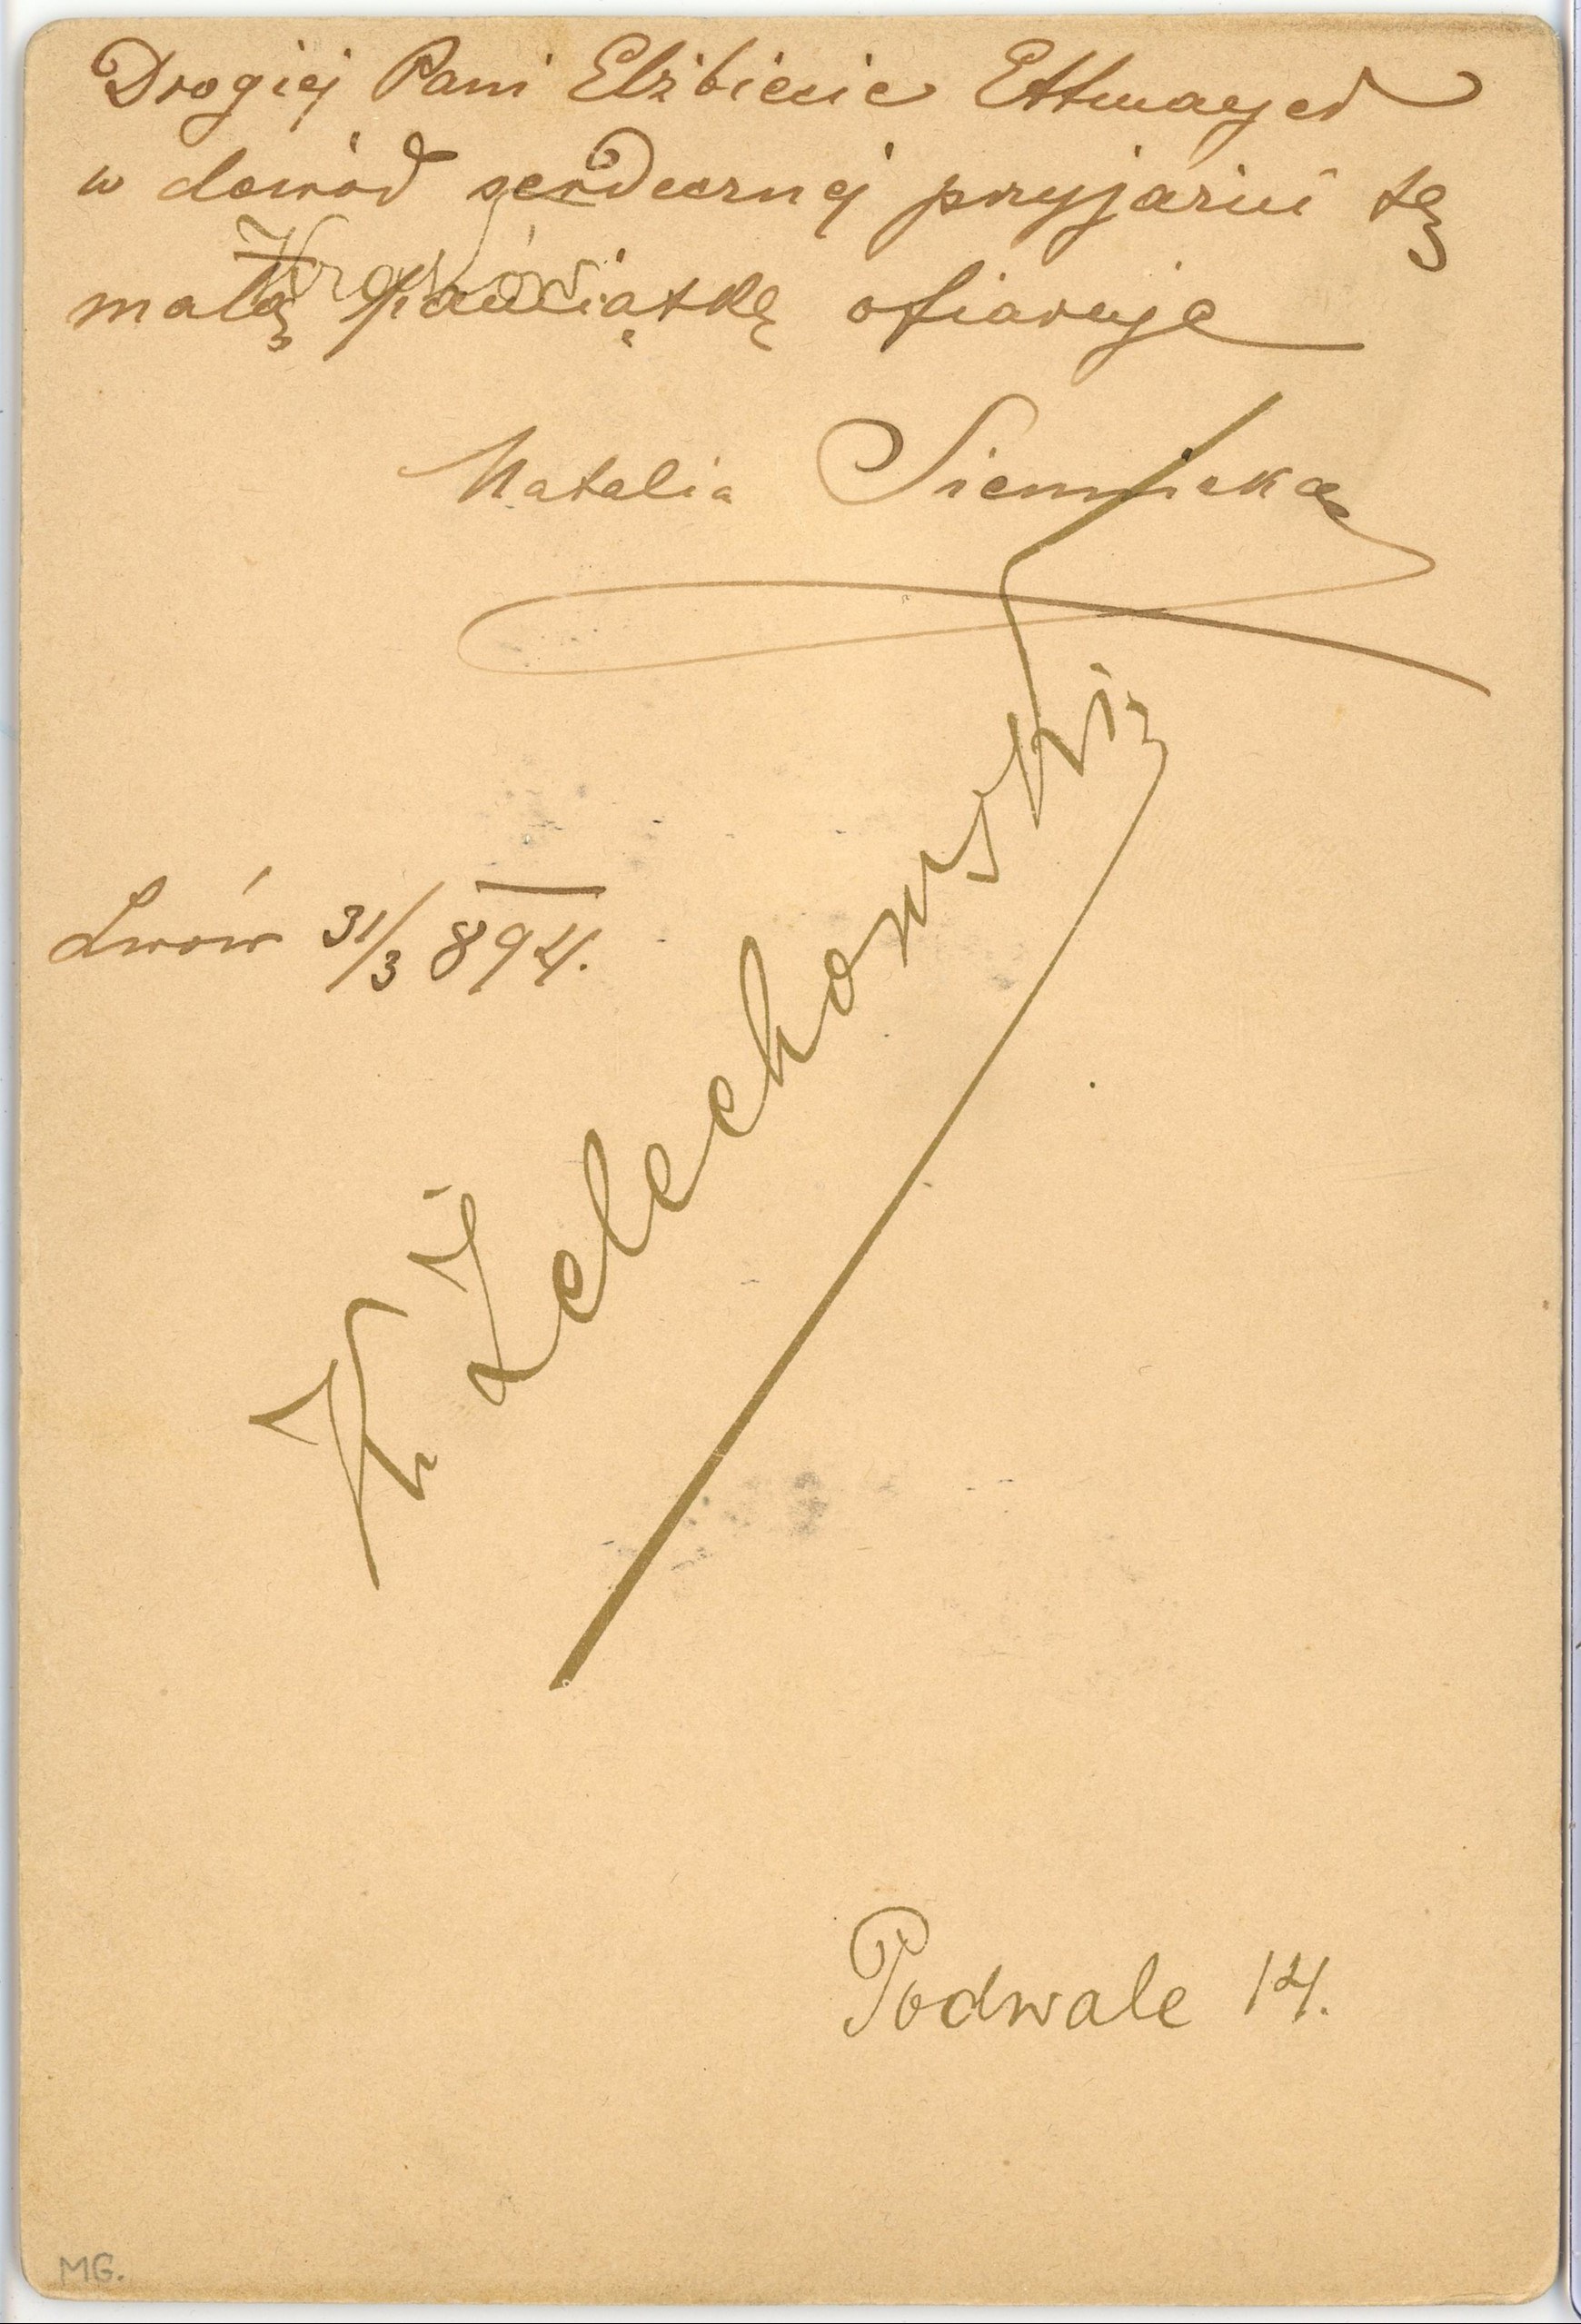 Drogiej Pani Elżbiecie Ettmayer
w dowód serdecznej przyjaźni tę
małą pamiątkę ofiaruje
Kraków
Natalia Siennicka
Lwów 31/3 894.
K Żelechowski
Podwale 14.
MG.